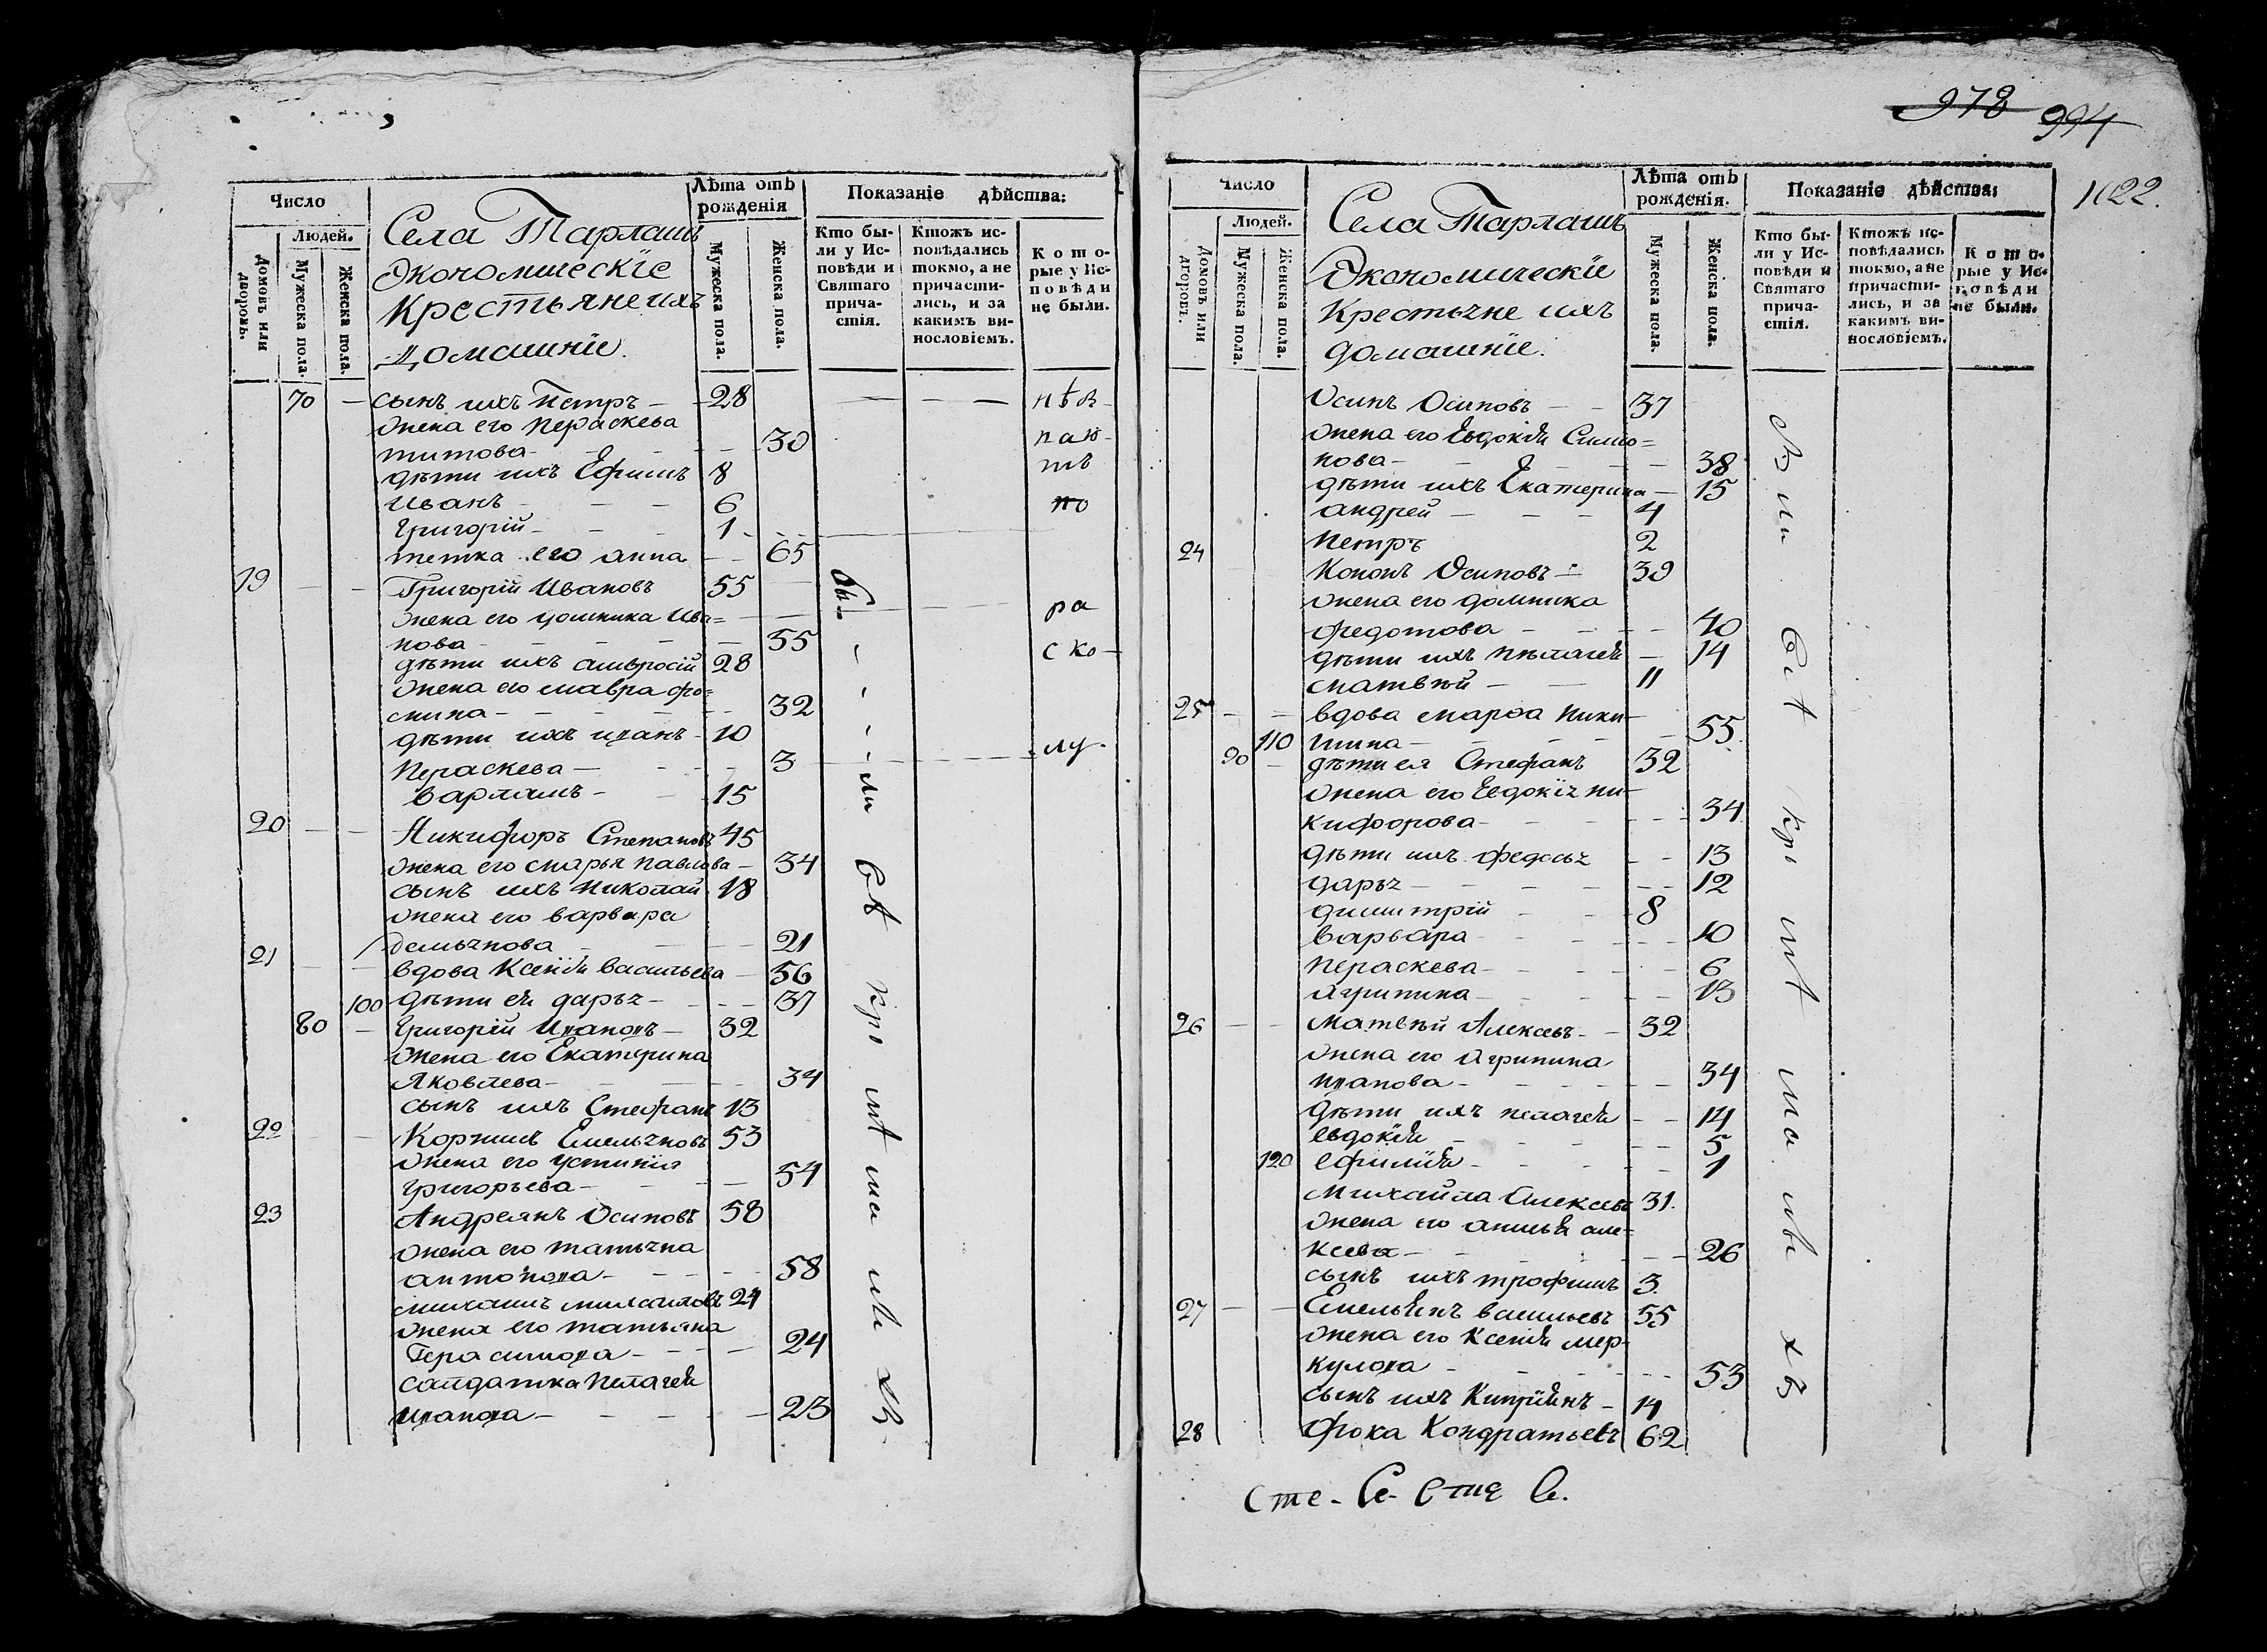 978 994
1022.
Число
Людей.
Домовъ или дворовъ.
Мужеска пола.
Женска пола.
Села Тарлашъ
Экономическіе
Крестьяне ихъ
домашніе.
Лѣта отъ рожденія
Мужеска пола.
Женска пола.
Показаніе дѣйства:
Кто были у Исповѣди и Святаго причастія.
Ктожъ исповѣдались токмо, а не причастились, и за какимъ винословіемъ.
Которые у Исповѣди не были.
70 — сынъ ихъ Петръ — 28
жена его Пераскева
титова — 30
дѣти ихъ Ефимъ 8
Иванъ — 6
Григорій — 1
тетка его анна — 65
19 — Григорій Ивановъ 55
жена его домника Ива=
нова — 55
дѣти ихъ амвросій 28
жена его мавра фо=
мина — 32
дѣти ихъ иванъ — 10
Пераскева — 3
варламъ — 15
20 — Никифоръ Степановъ 45
жена его марья павлова — 34
сынъ ихъ николай 18
жена его варвара
демьянова — 21
21 — вдова Ксенія васильева — 56
100 дѣти ея дарья — 37
80 — Григорій Ивановъ — 32
жена его Екатерина
Яковлева — 34
сынъ ихъ Стефанъ 13
22 — Корнилъ Емельяновъ 53
жена его устинія
григорьева — 54
23 Андреянъ Осиповъ 58
жена его татьяна
антонова — 58
михаилъ михаиловъ 24
жена его татьяна
Герасимова — 24
салдатка Пелагея
иванова — 23
бы — — — — ли
нѣ
по
ра
ско
лу.
Число
Людей.
Домовъ или дворовъ.
Мужеска пола.
Женска пола.
Села Тарлашъ
Экономическіе
Крестьяне ихъ
домашніе.
Лѣта отъ рожденія.
Мужеска пола.
Женска пола.
Показаніе дѣйства:
Кто были у Исповѣди и Святаго причастія.
Ктожъ исповѣдались токмо, а не причастились, и за какимъ винословіемъ.
Которые у Исповѣди не были.
Осипъ Осиповъ — 37
жена его Евдокія Симо=
нова — 38
дѣти ихъ Екатерина — 15
андрей — 4
Петръ 2
24 Кононъ Осиповъ — 39
жена его домника
федотова — 40
дѣти ихъ пелагея — 14
матвѣй — 11
25 — вдова марфа Ники-
110 тина — 55.
90 — дѣти ея Стефанъ 32
жена его Евдокія ни-
кифорова — 34
дѣти ихъ федосья — 13
дарья — 12
димитрій — 8
варвара — 10
Пераскева — 6
агрипина — 13
26 — Матвѣй Алексѣевъ — 32
жена его агрипина
иванова — 34
дѣти ихъ пелагея — 14
евдокія — 5
120 ефимія — 1
Михайла Алексѣевъ 31.
жена его але-
ксева — 26
сынъ ихъ трофимъ 3.
27 — Емельянъ васильевъ 55
жена его Ксенія мер-
кулова — 53
сынъ ихъ Кипріянъ — 14
28 Фока Кондратьевъ 62